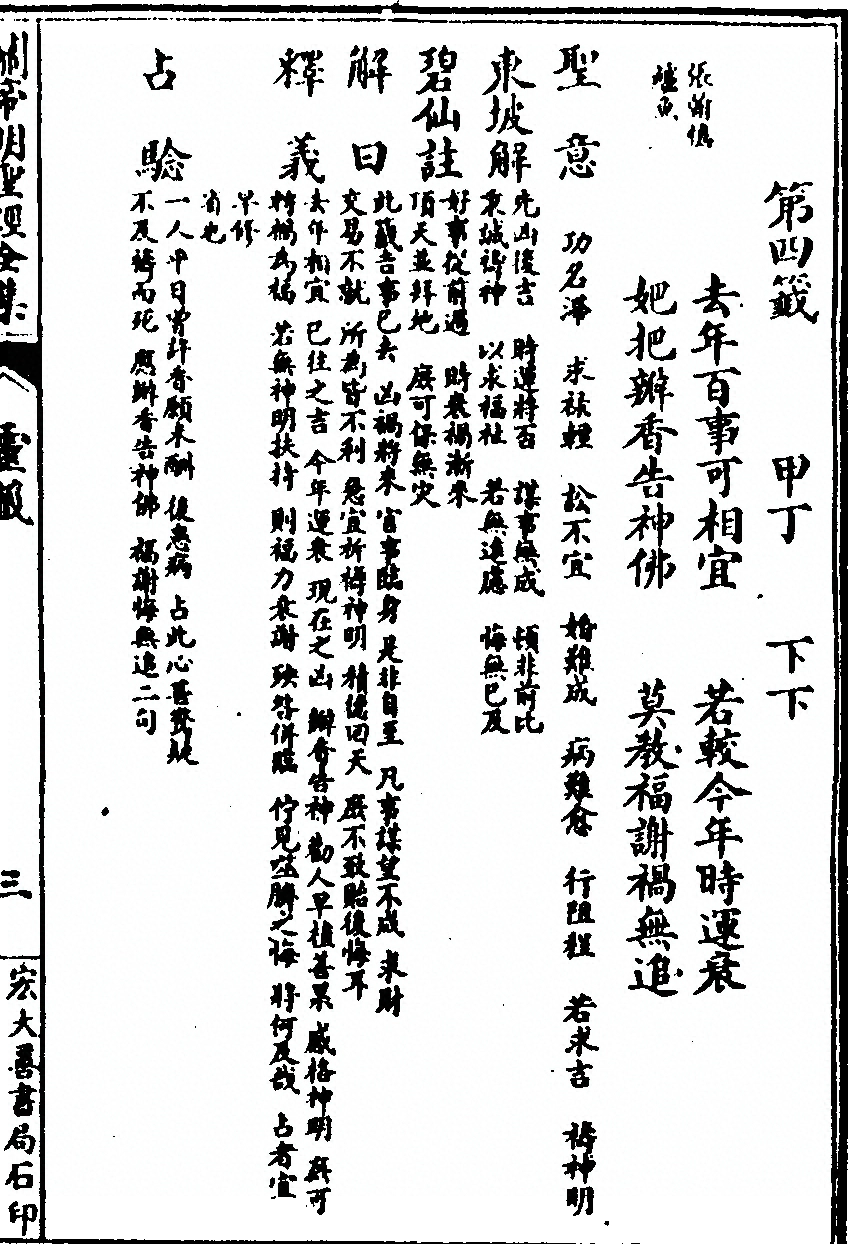 第四籤 甲丁 下下
去年百事可相宜 若較今年時運衰
好把瓣香告神佛 莫教福謝禍無追
聖意 功名滯 求祿輕 訟不宜 婚難成 病難愈 行阻程 若求吉 禱神明
東坡解 先凶後吉 時運將否 謀事無成 頓非前比
秉誠禱神 以求福祉 若無進慮 悔無已及
碧仙註 好事從前過 時衰禍漸來
頂天並拜地 庶可保無災
解曰 此籤告事已去 凶禍將來 官事臨身 是非自至 凡事謀望不成 求財
交易不就 所為皆不利 急宜祈禱神明 積德回天 庶不致貽後悔耳
釋義 去年相宜 已往之吉 今年運衰 現在之凶 瓣香告神 勸人早植善果 感格神明 庶可
轉禍為福 若無神明扶持 則福力衰謝 殃咎併臨 佇見噬臍之悔 將何及哉 占者宜
早修
省也
占驗 一人平日曾許香願未酬 後患病 占此心甚
不及禱而死 應瓣香告神佛 福謝悔無追二句
關帝明聖經全集
靈籤
三
宏大善書局石印